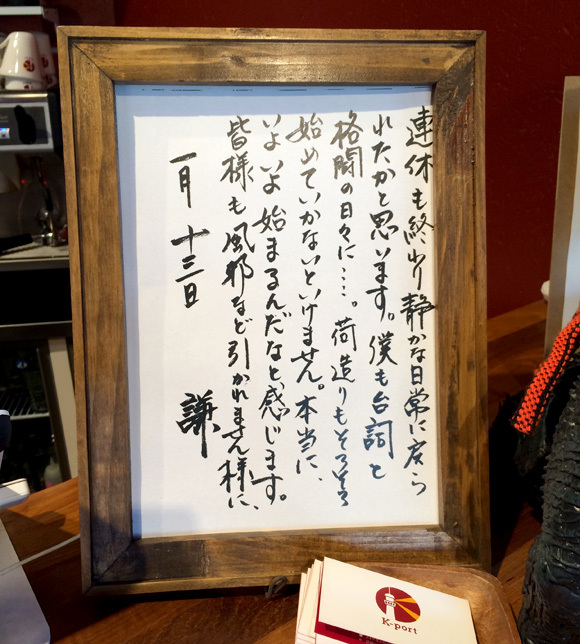 連休も終わり静かな日常に戻ら
れたかと思います。僕も台詞と
格闘の日々に…。荷造りもそろそろ
始めていかないといけません。本当に、
いよいよ始まるんだなと、感じます。
皆様も風邪など引かれません様に、
一月十三日
謙
K-port